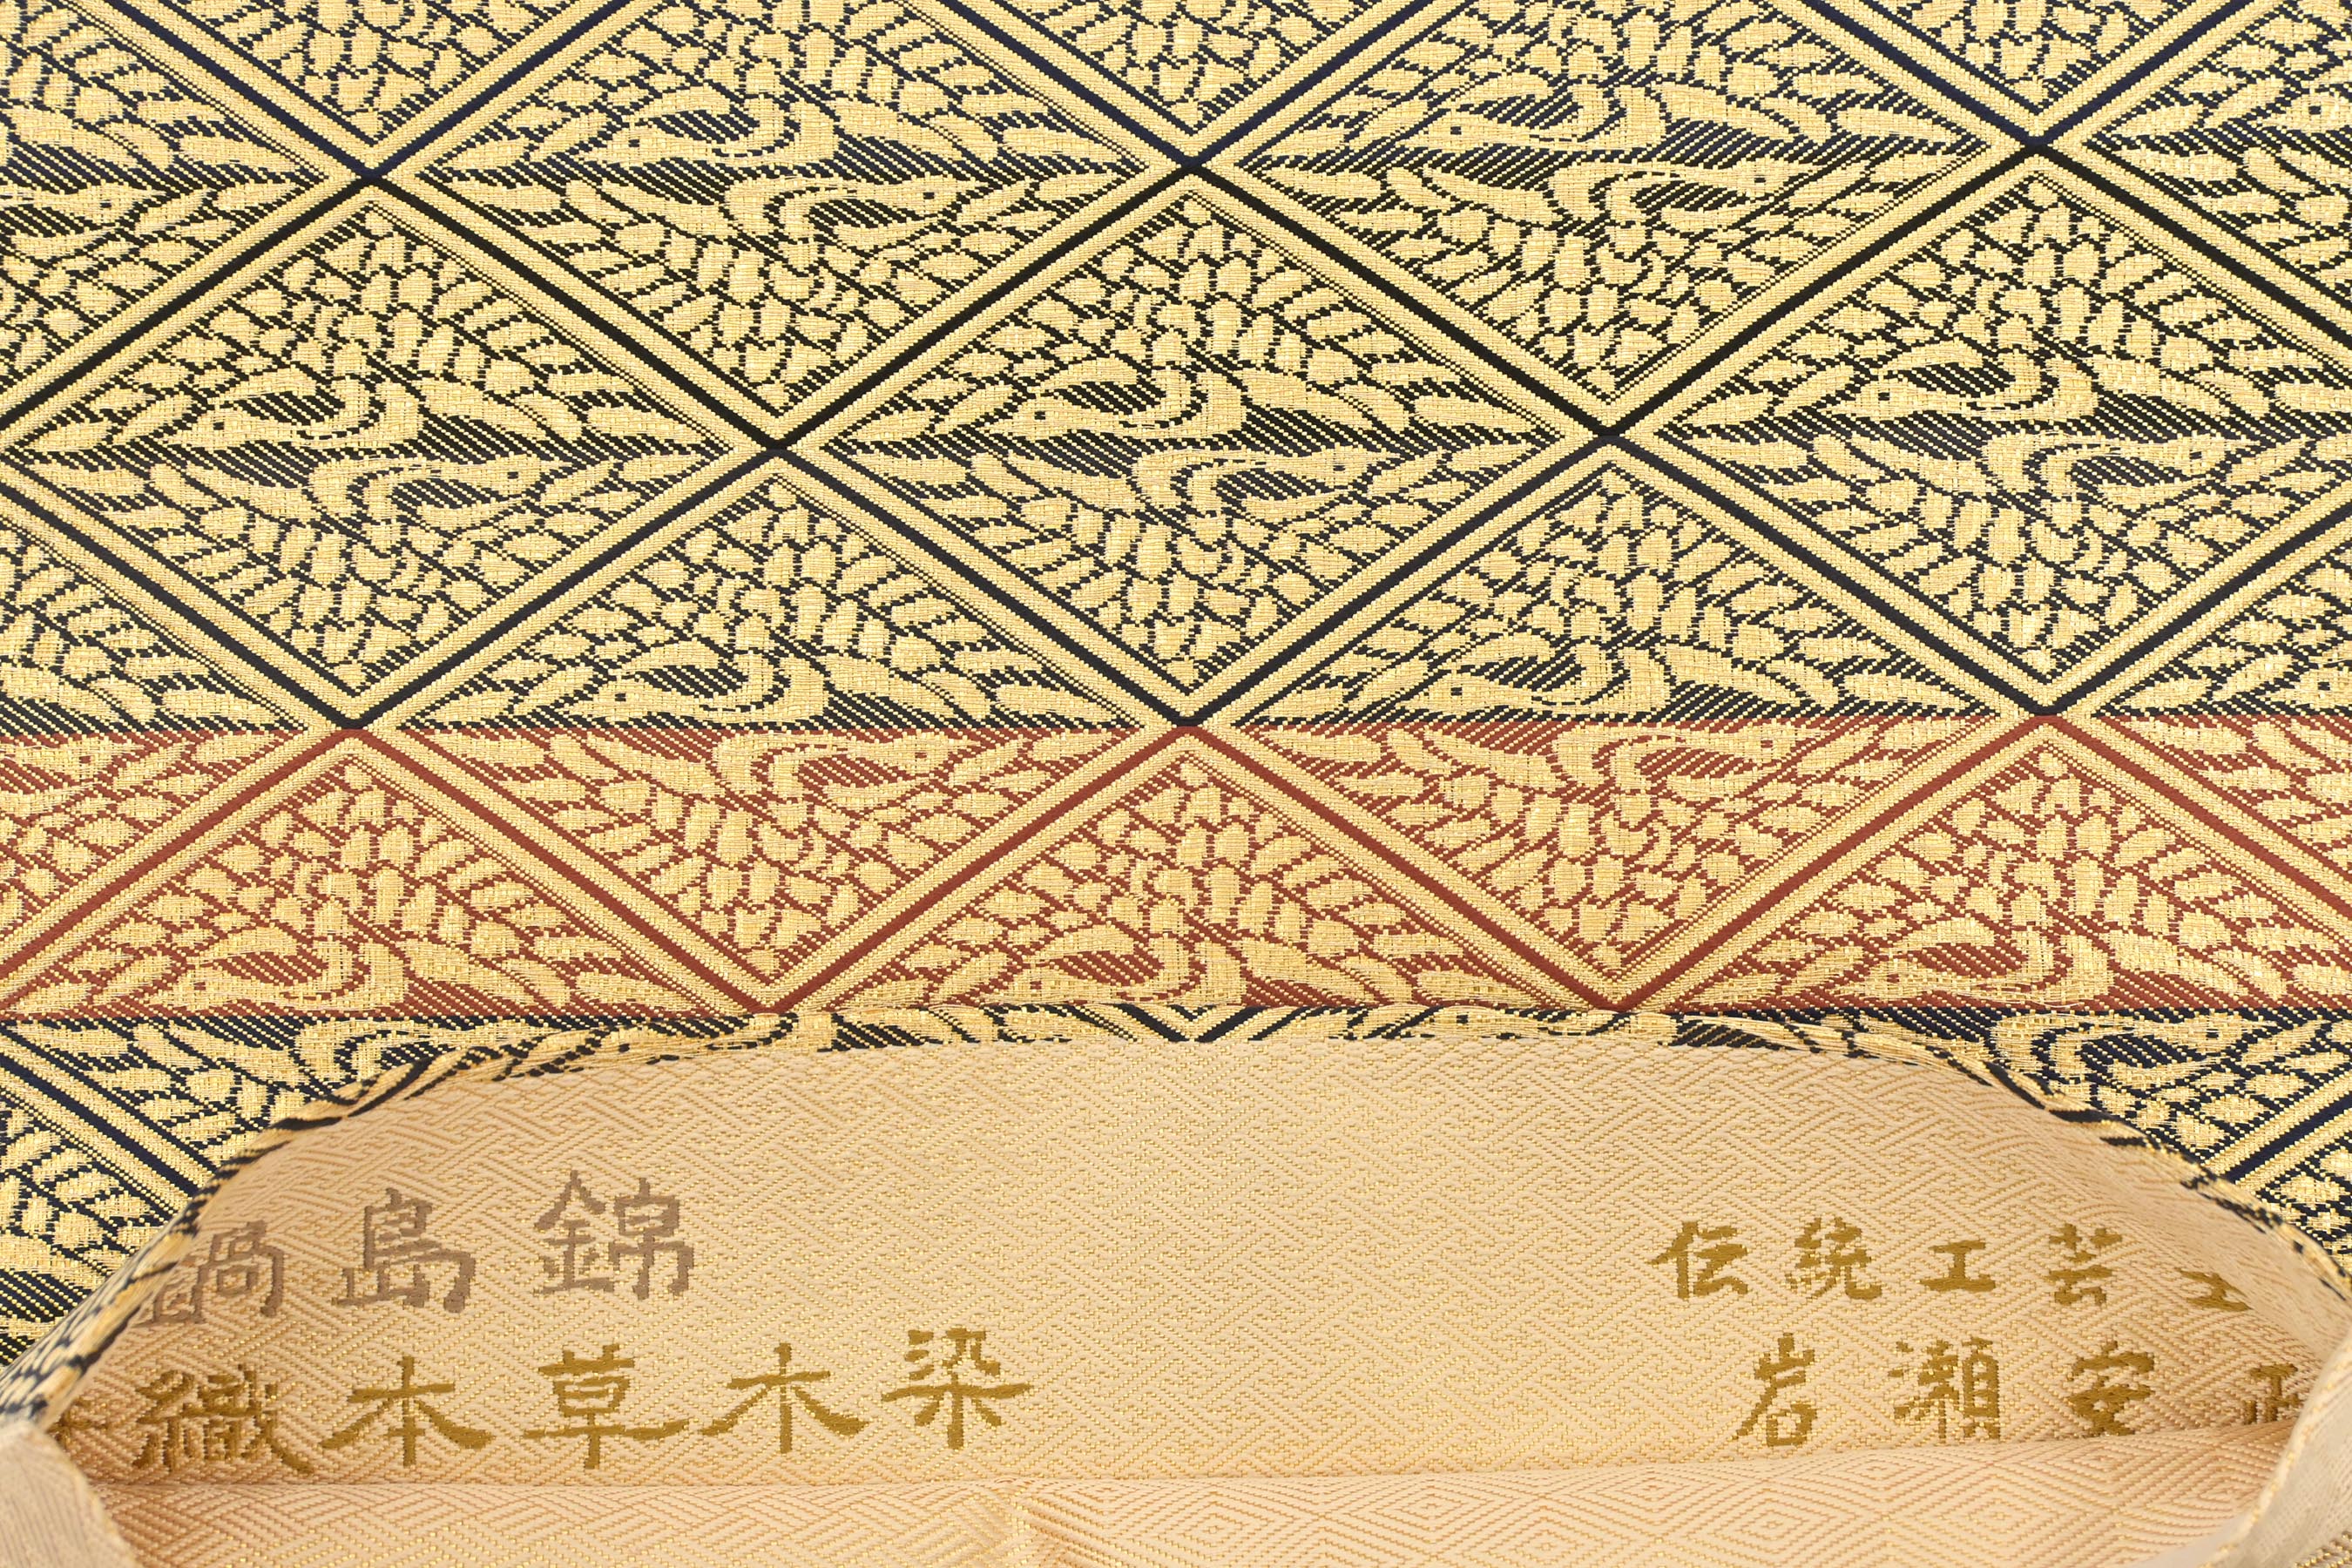 鍋島錦
織本草木染
伝統工芸
岩瀬安